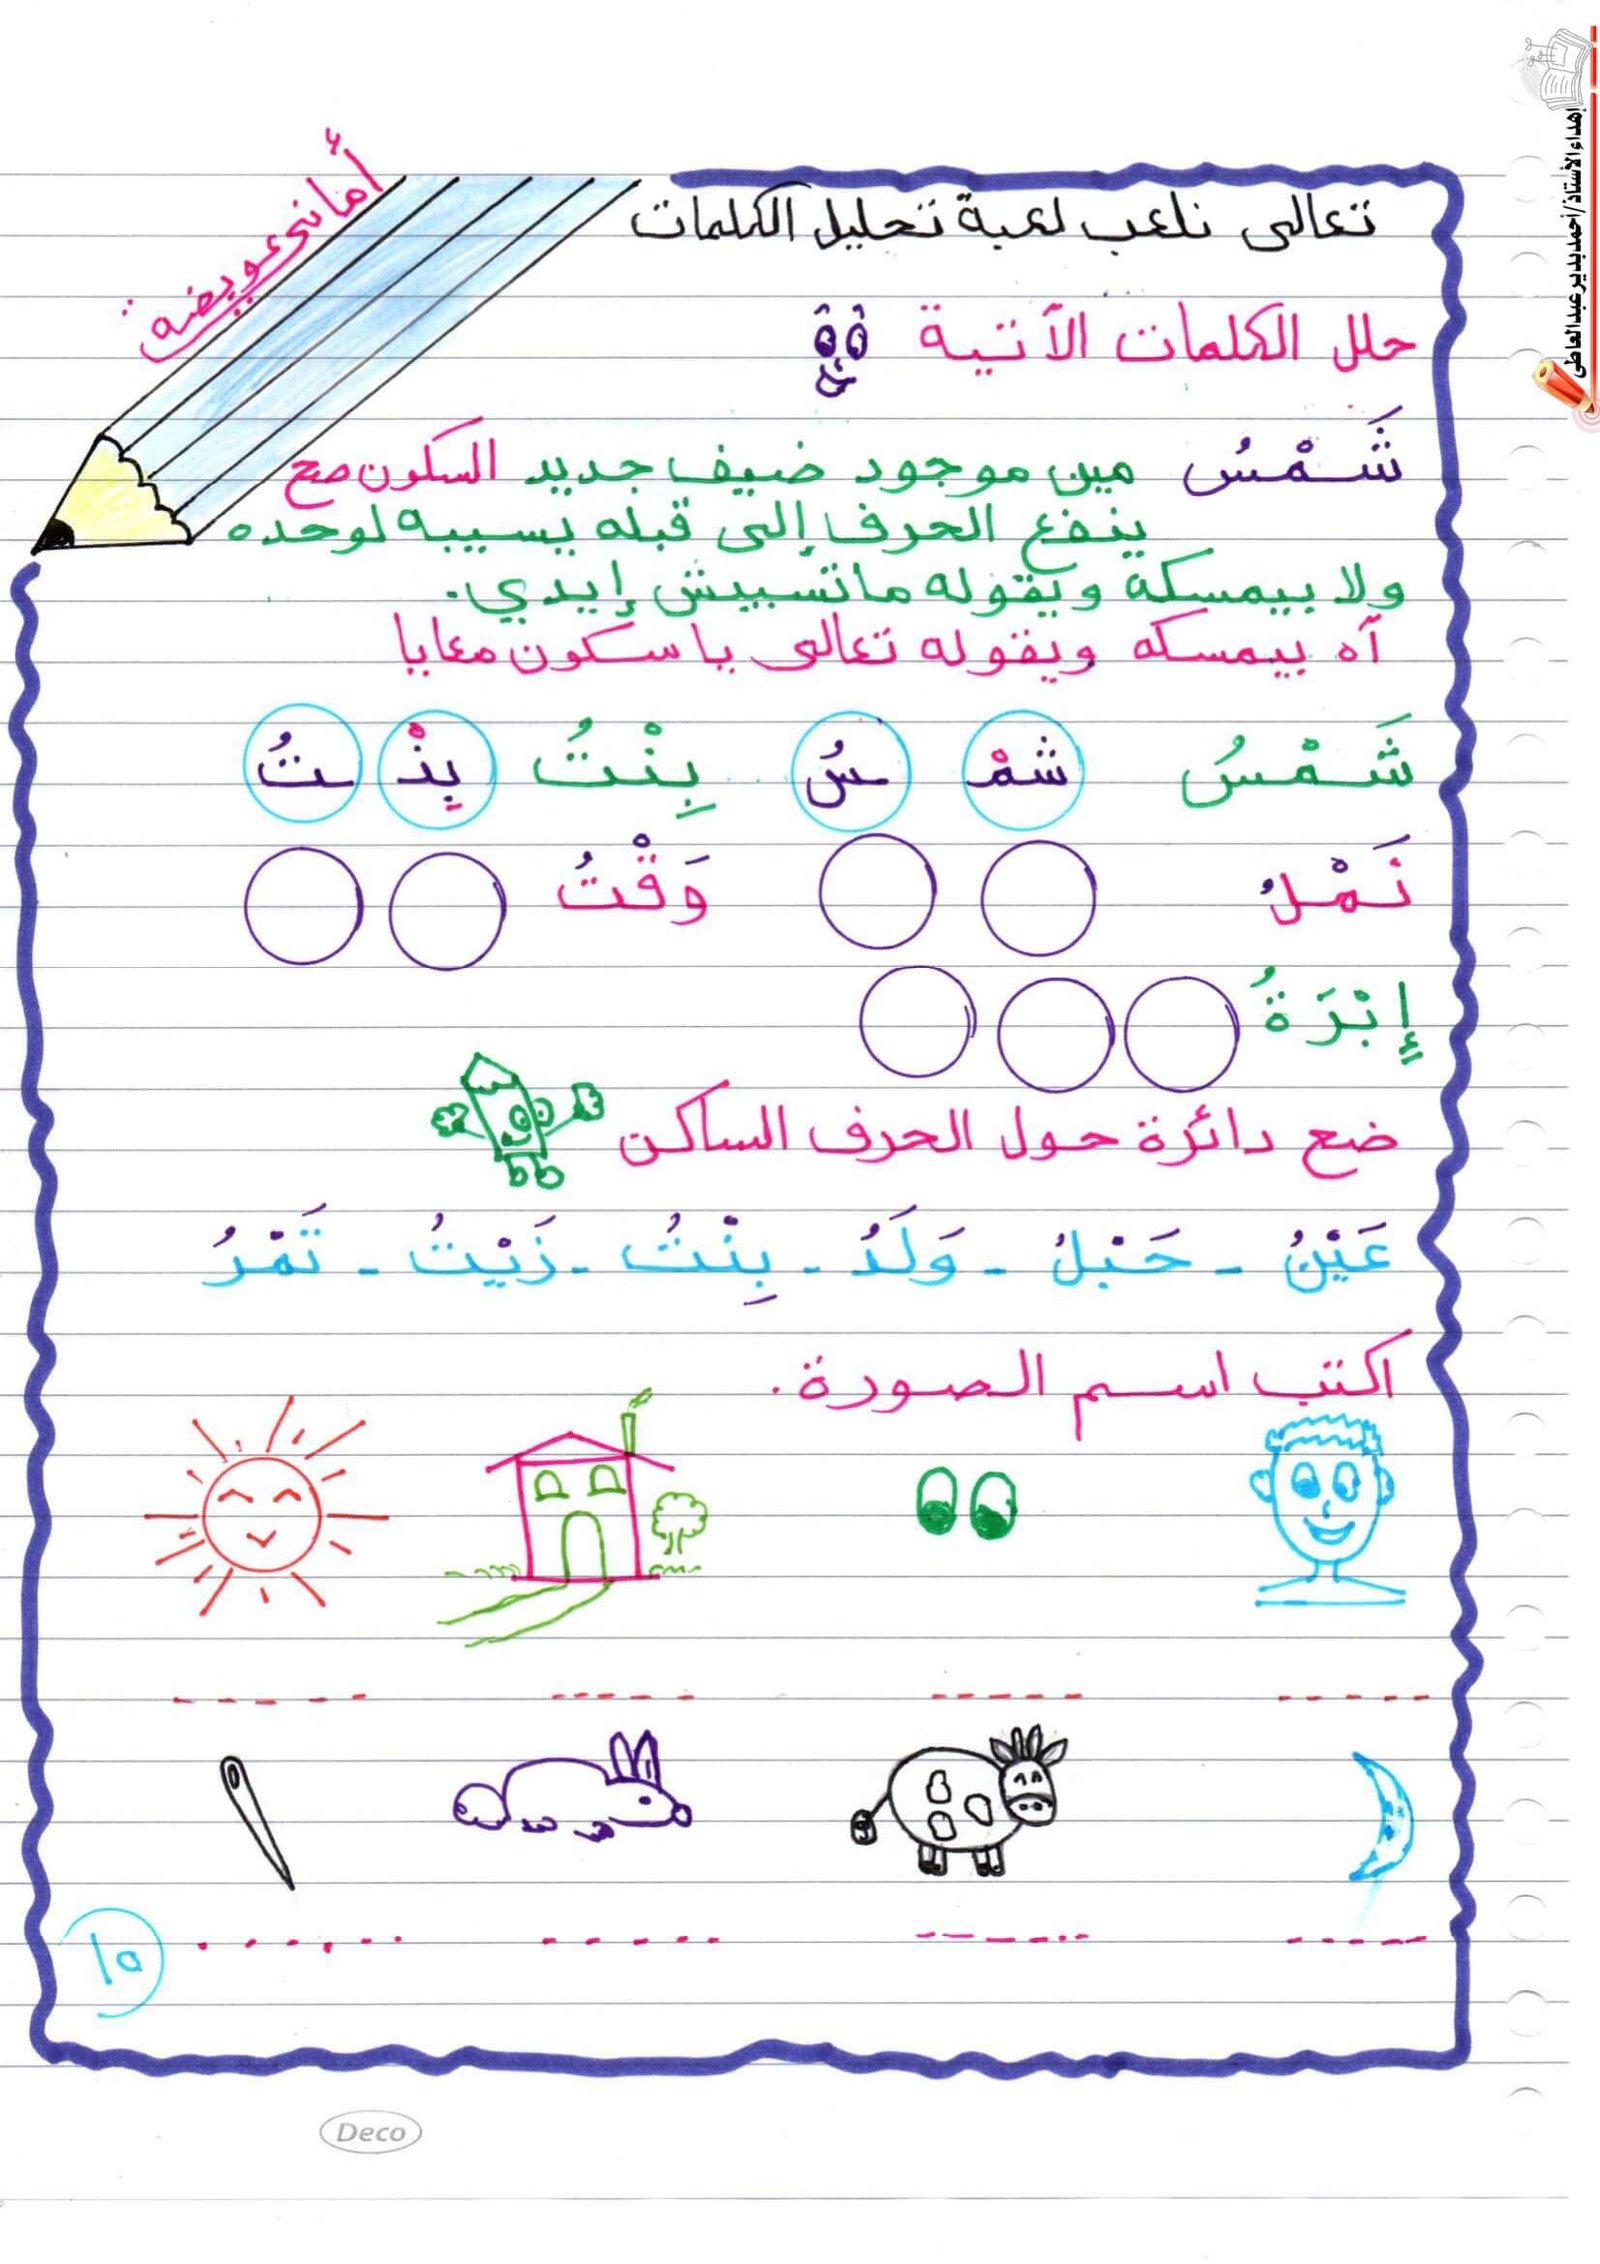 إهداء الأستاذ/أحمد بدير عبدالعاطى
أمانى عويضه
تعالى نلعب لعبة تحليل الكلمات
حلل الكلمات الآتية
شَمْسُ مين موجود ضيف جديد السكون صح
ينفع الحرف إلى قبله يسيبه لوحده
ولا بيمسكة ويقوله ماتسبيش إيدي.
آه بيمسكه ويقوله تعالى يا سكون معايا
شَمْسُ شمْ سُ بِنْتُ بِنْ تُ
نَمْلُ وَقْتُ
إِبْرَةُ
ضع دائرة حول الحرف الساكن
عَيْنُ - حَبْلُ - وَلَدُ - بِنْتُ - زَيْتُ - تَمْرُ
اكتب اسم الصورة.
١٥
Deco